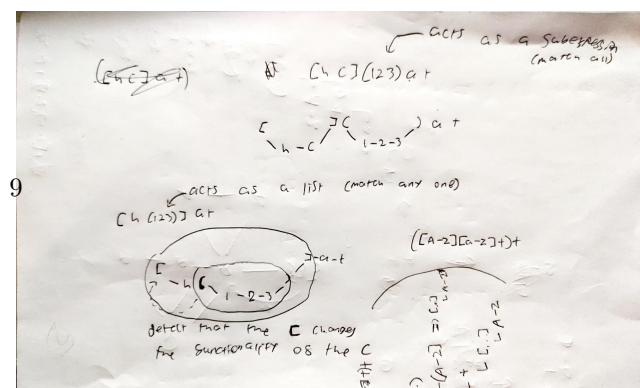 acts as a subexpression
(match all)
([hc]at)
[hc](123)at
[ ]( ) at
h-c 1-2-3
9
acts as a list (match any one)
[h(123)]at
([A-Z][a-z]+)+
[ ]-a-t
h ( )
1-2-3
detect that the [ changes
the functionality of the (